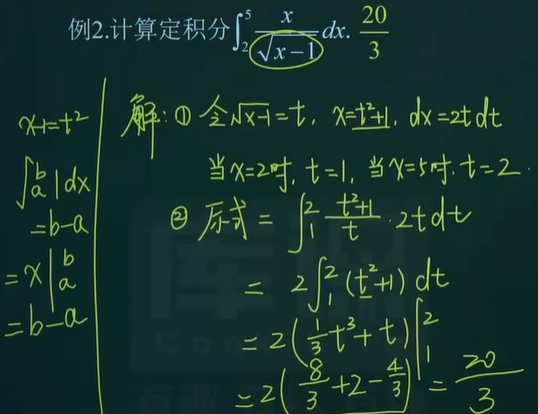 例2.计算定积分∫₂⁵ x/√(x−1) dx. 20/3
x-1=t²
∫ₐᵇ 1dx
=b-a
=x|ₐᵇ
=b-a
解:① 令√(x-1)=t, x=t²+1, dx=2tdt
当x=2时, t=1, 当x=5时, t=2.
② 原式=∫₁² (t²+1)/t · 2tdt
=2∫₁² (t²+1)dt
=2(1/3 t³+t)|₁²
=2(8/3+2-4/3)=20/3